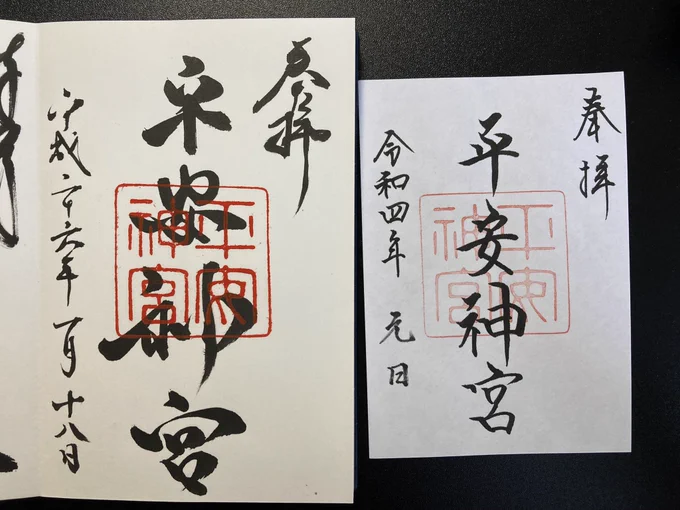 奉拝
平安神宮
平安
神宮
平成二十六年一月十八日
奉拝
平安神宮
平安
神宮
令和四年 元日